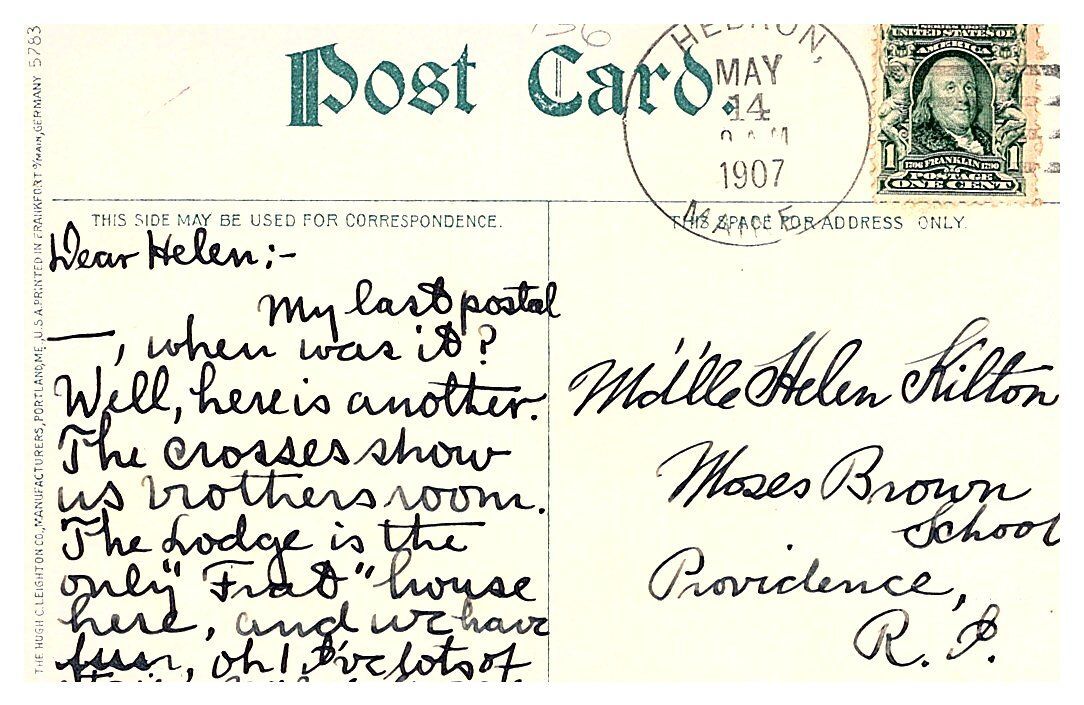 THE HUGH C. LEIGHTON CO., MANUFACTURERS, PORTLAND, ME., U.S.A. PRINTED IN FRANKFORT o/MAIN, GERMANY 5783
Post Card.
136
HEBRON,
MAY
14
1907
MAINE
SERIES 1902
UNITED STATES OF
AMERICA
1 1
1706 FRANKLIN 1790
POSTAGE
ONE CENT
THIS SIDE MAY BE USED FOR CORRESPONDENCE.
Dear Helen:-
My last postal
—, when was it?
Well, here is another.
The crosses show
us brothers room.
The Lodge is the
only "Frat" house
here, and we have
fun, oh! I've lots of
THIS SPACE FOR ADDRESS ONLY.
M'd'lle Helen Kilton
Moses Brown
School
Providence,
R. I.